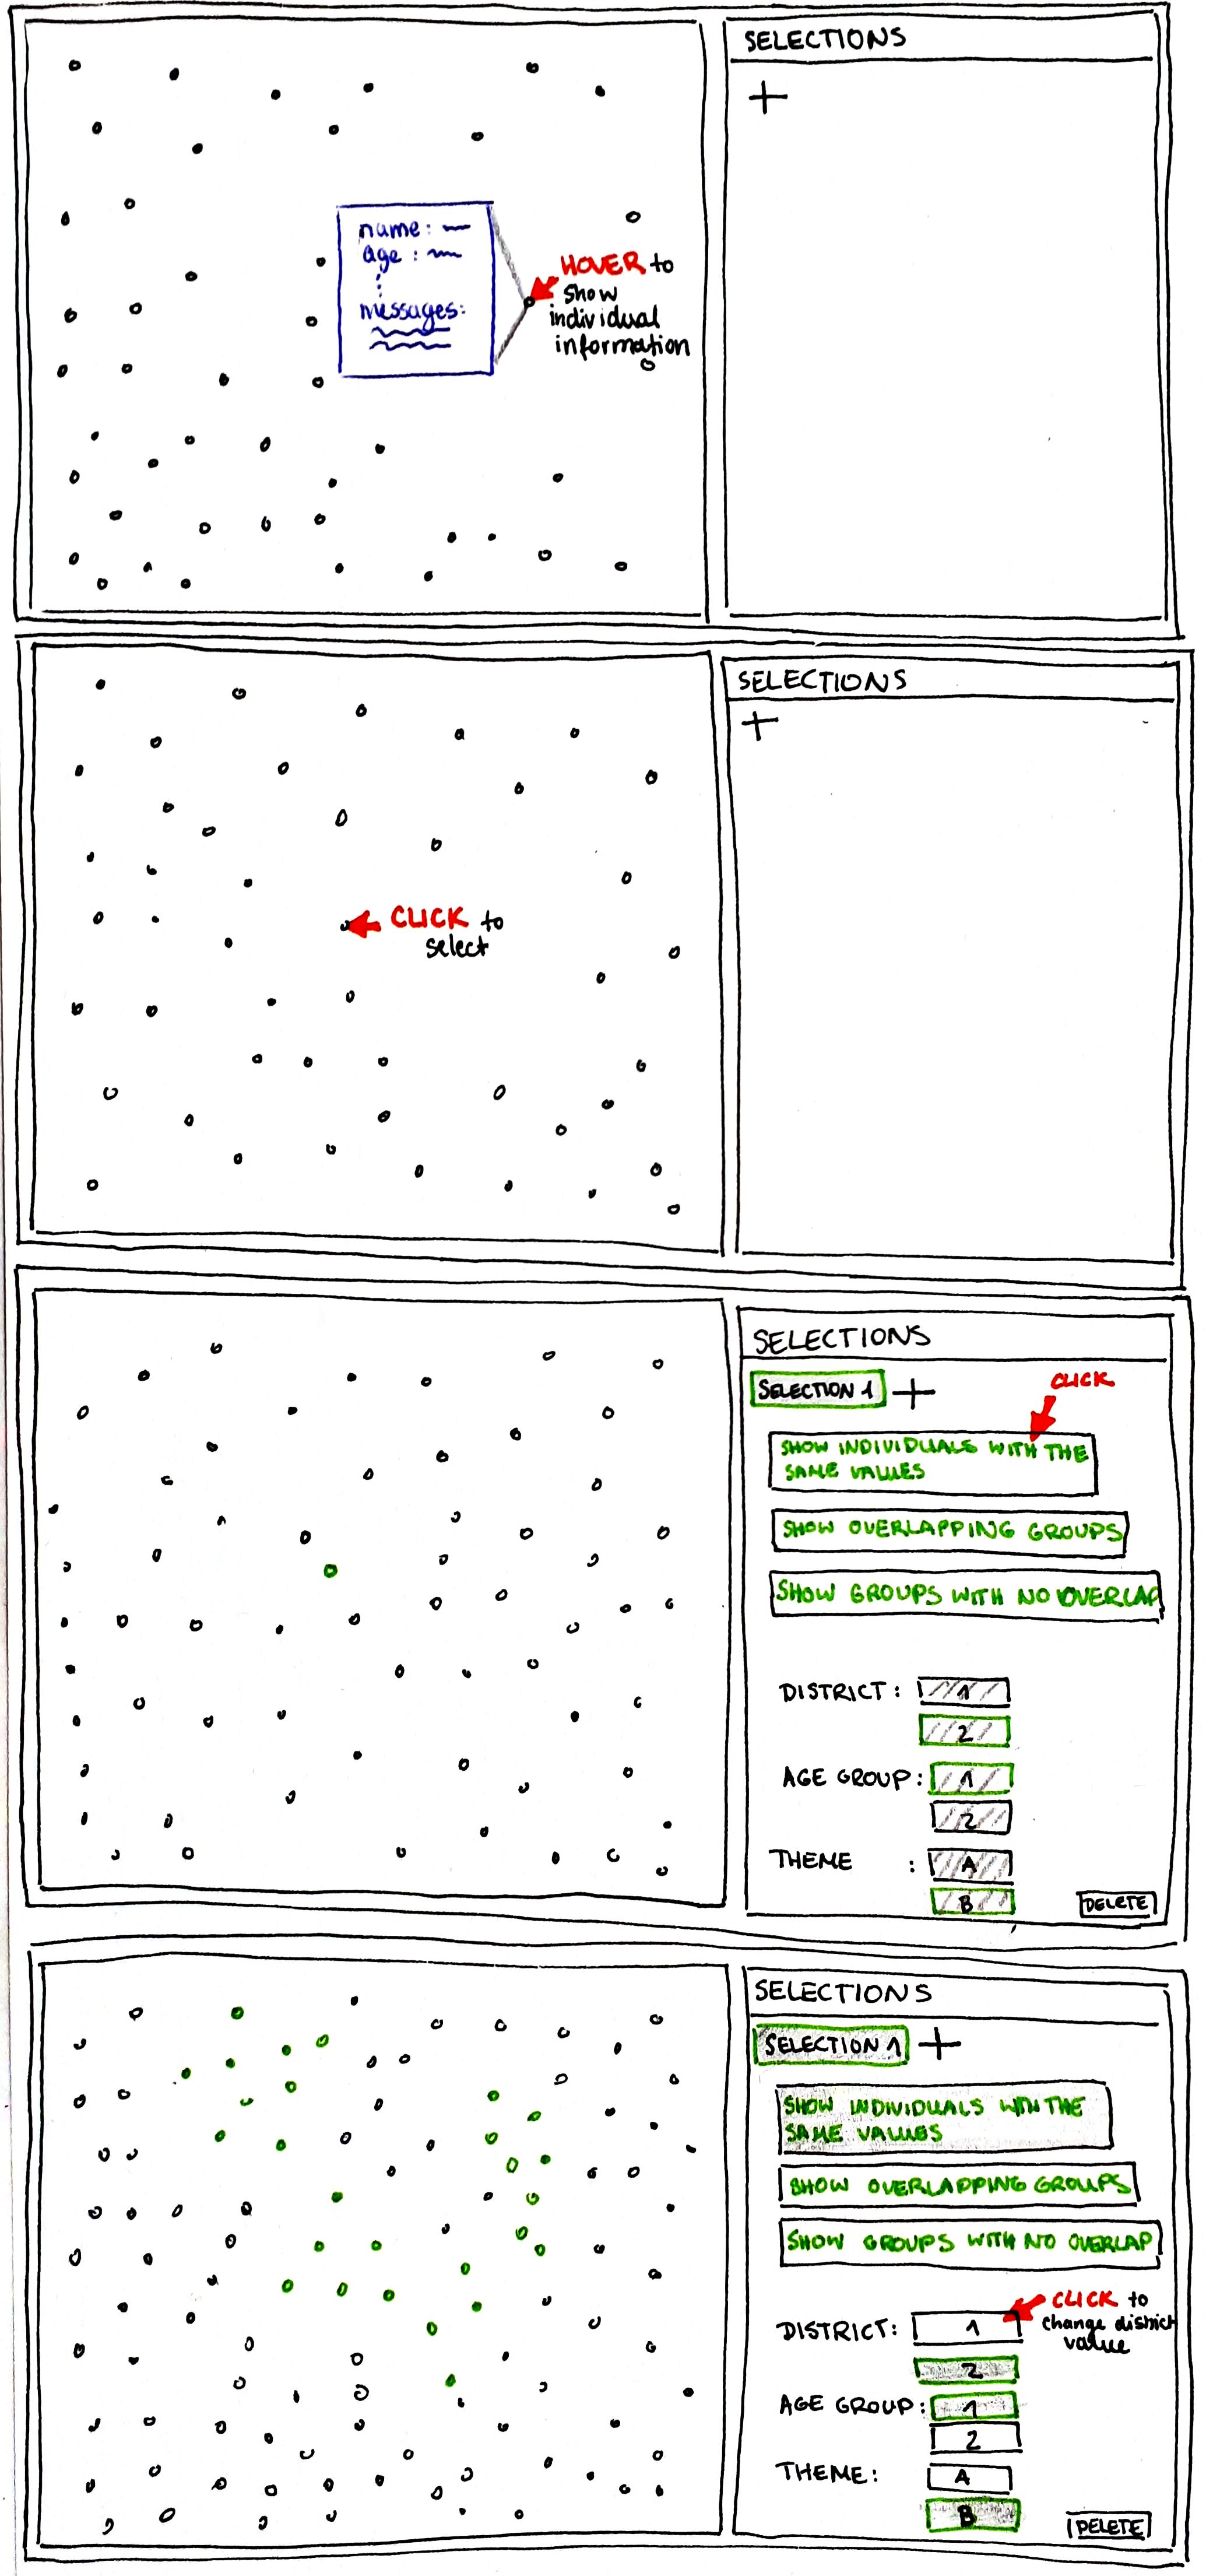 SELECTIONS
+
name:
age:
messages:
HOVER to
show
individual
information
SELECTIONS
+
CLICK to
select
SELECTIONS
SELECTION 1 +
CLICK
SHOW INDIVIDUALS WITH THE
SAME VALUES
SHOW OVERLAPPING GROUPS
SHOW GROUPS WITH NO OVERLAP
DISTRICT: 1
2
AGE GROUP: 1
2
THEME : A
B
DELETE
SELECTIONS
SELECTION 1 +
SHOW INDIVIDUALS WITH THE
SAME VALUES
SHOW OVERLAPPING GROUPS
SHOW GROUPS WITH NO OVERLAP
CLICK to
change district
value
DISTRICT: 1
2
AGE GROUP: 1
2
THEME: A
B
DELETE